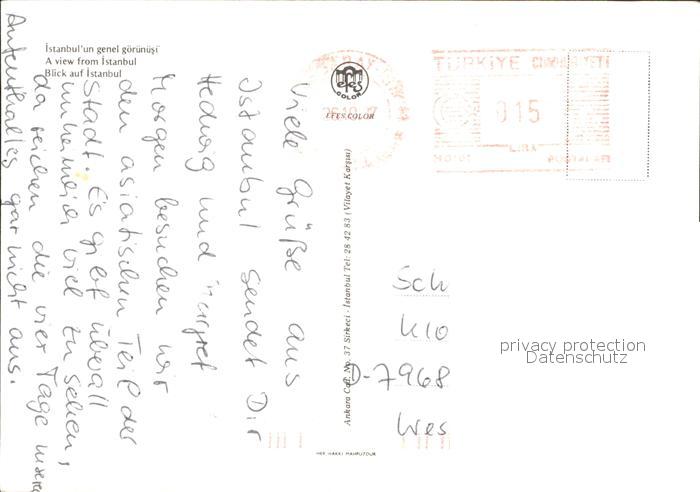 İstanbul'un genel görünüşi
A view from İstanbul
Blick auf İstanbul
Viele Grüße aus
Istanbul sendet Dir
Hedwig und
Morgen besuchen wir
den asiatischen Teil der
Stadt. Es gibt überall
unheimlich viel zu sehen,
da reichen die vier Tage unseres
Aufenthaltes gar nicht aus.
EFES
COLOR
EFES COLOR
Ankara Cad. No. 37 Sirkeci - İstanbul Tel: 28 42 83 (Vilayet Karşısı)
HER HAKKI MAHFUZDUR
TÜRKİYE CUMHURİYETİ
015
LİRA
Sch
Klo
D-7968
Wes
privacy protection
Datenschutz